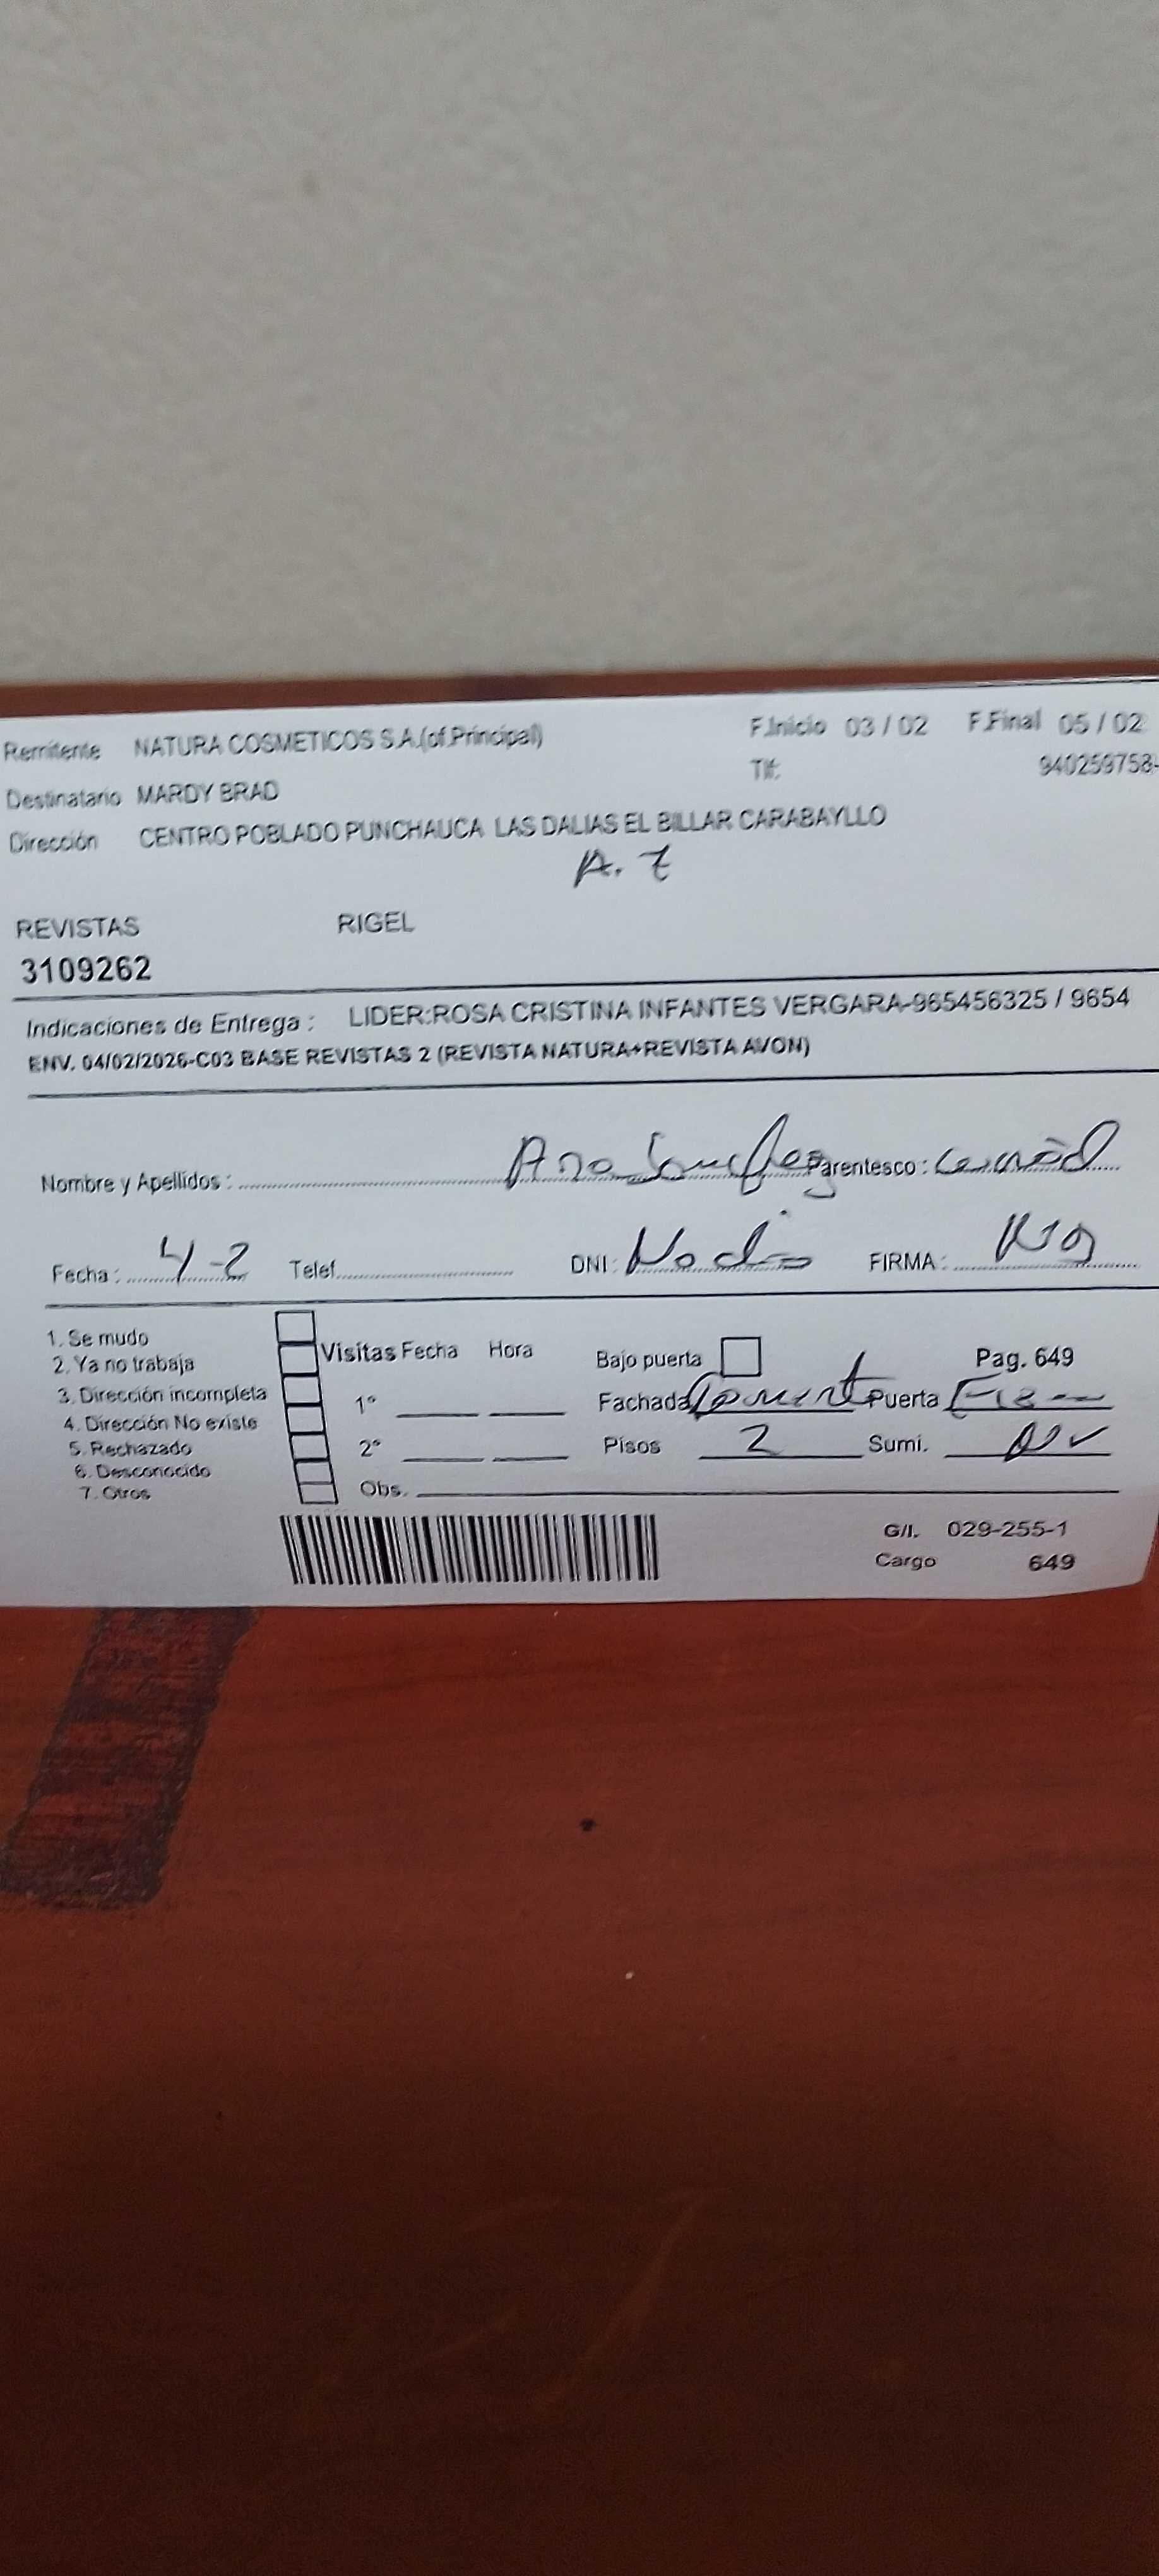 Remitente NATURA COSMETICOS S.A.(of.Principal) F.Inicio 03 / 02 F.Final 05 / 02
Tlf: 940259758-
Destinatario MARDY BRAD
Dirección CENTRO POBLADO PUNCHAUCA LAS DALIAS EL BILLAR CARABAYLLO
A. Z
REVISTAS RIGEL
3109262
Indicaciones de Entrega : LIDER:ROSA CRISTINA INFANTES VERGARA-965456325 / 9654
ENV. 04/02/2026-C03 BASE REVISTAS 2 (REVISTA NATURA+REVISTA AVON)
Nombre y Apellidos : Ana Parentesco :
Fecha : 4-2 Telef. DNI : No dio FIRMA :
1. Se mudo
2. Ya no trabaja
3. Dirección incompleta
4. Dirección No existe
5. Rechazado
6. Desconocido
7. Otros
Visitas Fecha Hora
1°
2°
Obs.
Bajo puerta Pag. 649
Fachada Puerta
Pisos 2 Sumi.
G/I. 029-255-1
Cargo 649